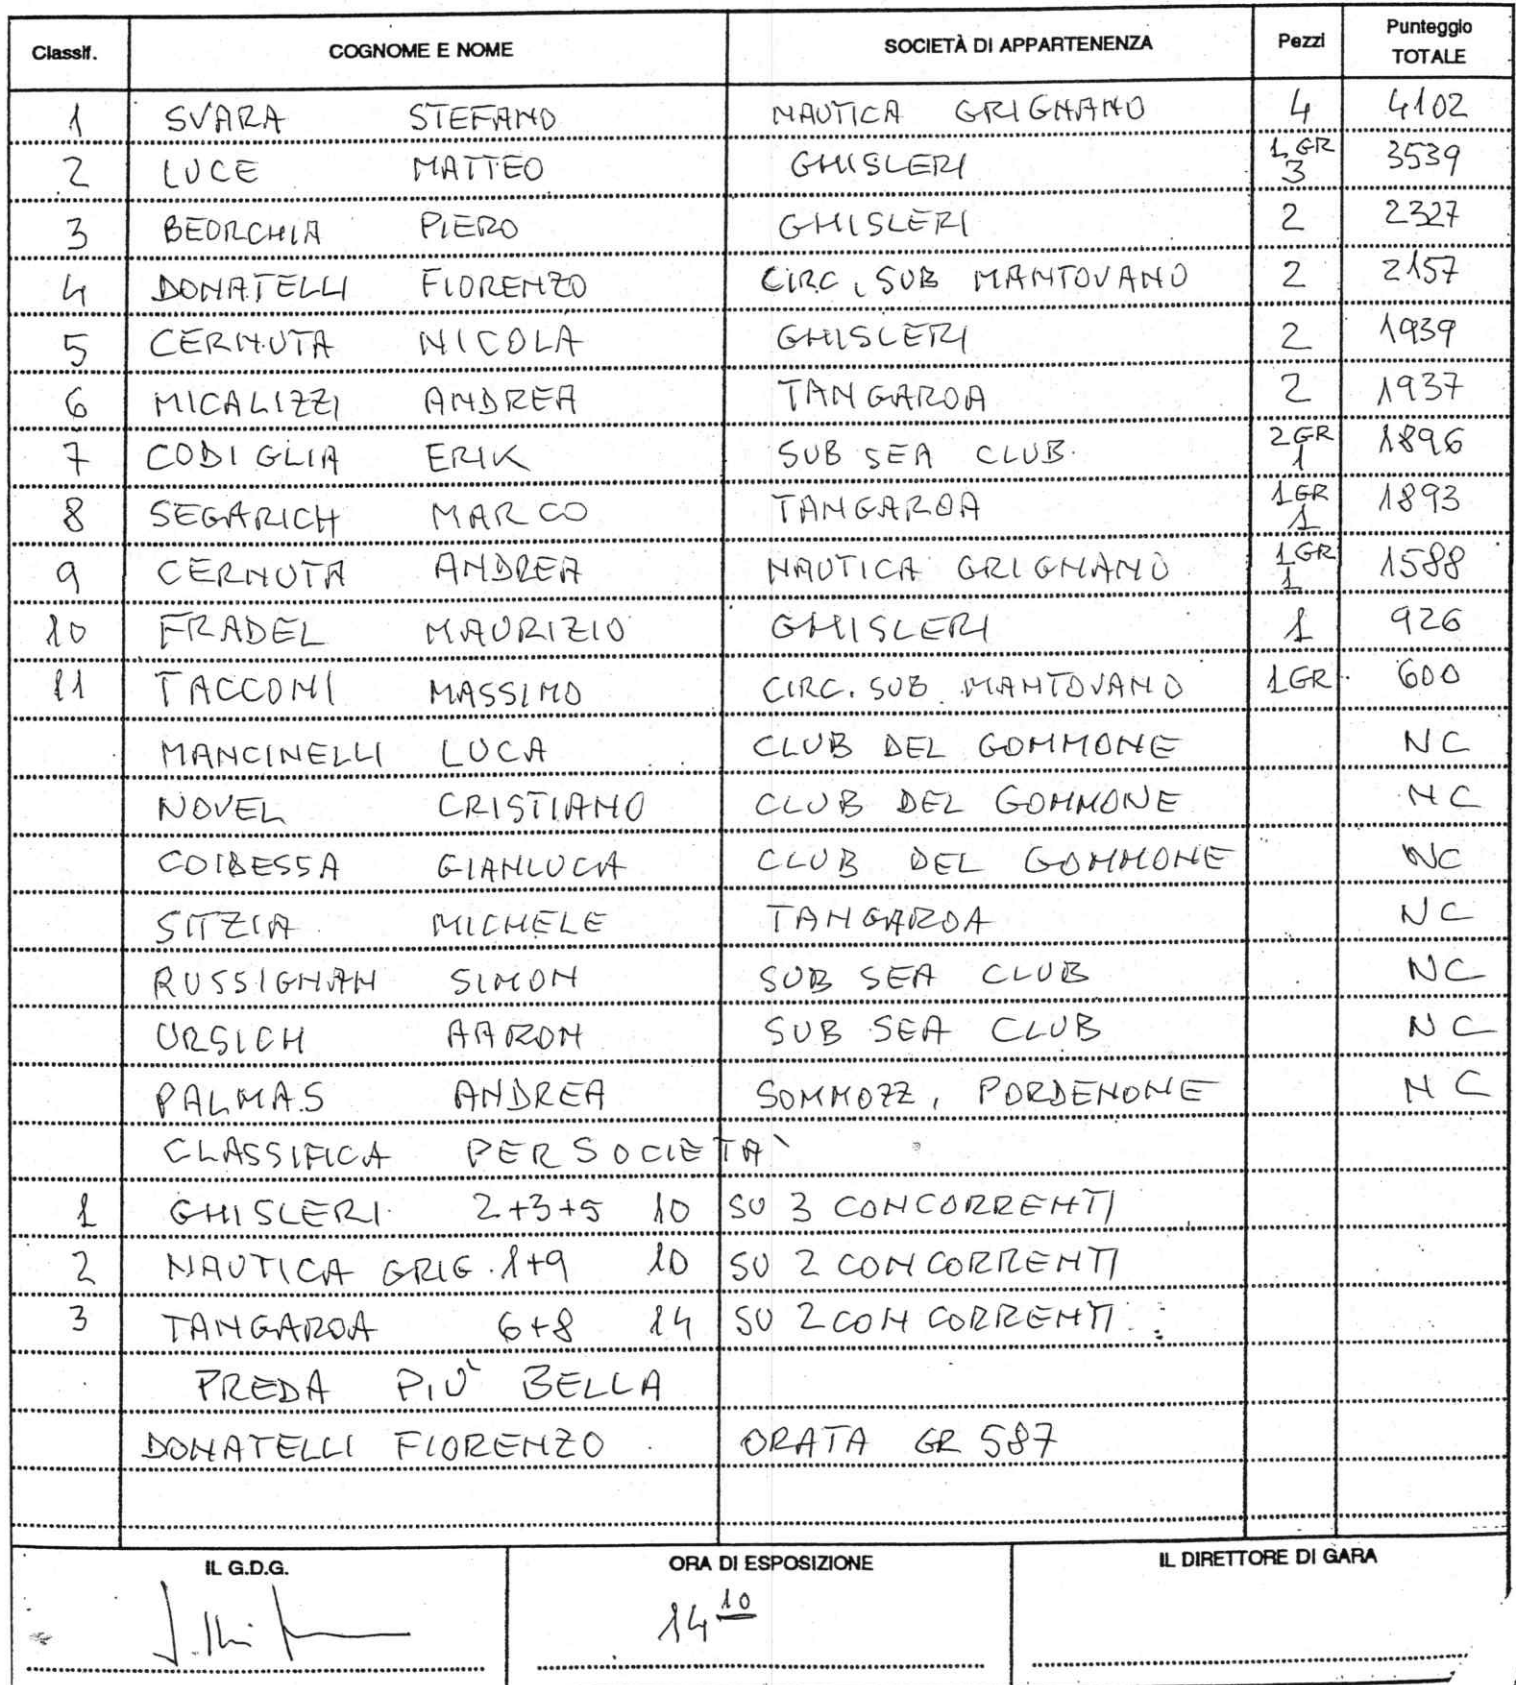 Classif. COGNOME E NOME SOCIETÀ DI APPARTENENZA Pezzi Punteggio TOTALE
1 SVARA STEFANO NAUTICA GRIGNANO 4 4102
2 LUCE MATTEO GHISLERI 1 GR 3 3539
3 BEORCHIA PIERO GHISLERI 2 2327
4 DONATELLI FIORENZO CIRC. SUB MANTOVANO 2 2157
5 CERNUTA NICOLA GHISLERI 2 1939
6 MICALIZZI ANDREA TANGAROA 2 1937
7 CODIGLIA ERIK SUB SEA CLUB 2 GR 1 1896
8 SEGARICH MARCO TANGAROA 1 GR 1 1893
9 CERNUTA ANDREA NAUTICA GRIGNANO 1 GR 1 1588
10 FRADEL MAURIZIO GHISLERI 1 926
11 TACCONI MASSIMO CIRC. SUB MANTOVANO 1 GR 600
MANCINELLI LUCA CLUB DEL GOMMONE NC
NOVEL CRISTIANO CLUB DEL GOMMONE NC
COIBESSA GIANLUCA CLUB DEL GOMMONE NC
SITZIA MICHELE TANGAROA NC
RUSSIGNAN SIMON SUB SEA CLUB NC
URSICH AARON SUB SEA CLUB NC
PALMAS ANDREA SOMMOZZ, PORDENONE NC
CLASSIFICA PER SOCIETÀ
1 GHISLERI 2+3+5 10 SU 3 CONCORRENTI
2 NAUTICA GRIG. 1+9 10 SU 2 CONCORRENTI
3 TANGAROA 6+8 14 SU 2 CONCORRENTI
PREDA PIÙ BELLA
DONATELLI FIORENZO ORATA GR 587
IL G.D.G. ORA DI ESPOSIZIONE IL DIRETTORE DI GARA
14 10